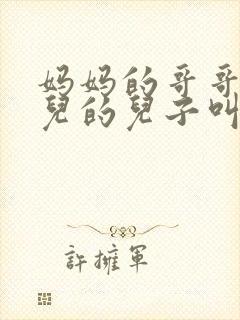 妈妈的哥哥
兒的兒子叫
許擁軍